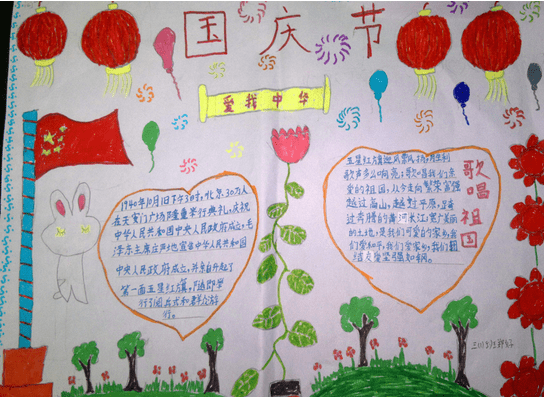 国庆节
爱我中华
1940年10月1日下午3时,北京30万人
在天安门广场隆重举行典礼,庆祝
中华人民共和国中央人民政府成立。毛
泽东主席庄严地宣告中华人民共和国
中央人民政府成立,并亲自升起了
第一面五星红旗,随即举
行阅兵式和群众游
行。
歌唱祖国
五星红旗迎风飘扬,胜利
歌声多么响亮;歌唱我们亲
爱的祖国,从今走向繁荣富强
越过高山,越过平原,
过奔腾的黄河长江;宽广美丽
的土地,是我们可爱的家乡,我
们爱和平,我们爱家乡,我们团
结友爱坚强如钢。